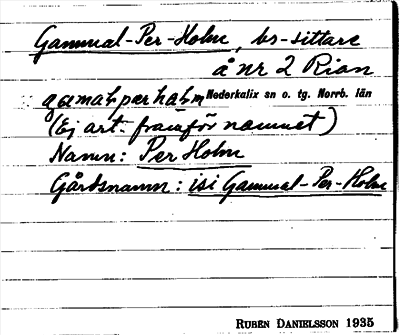 Gammal-Per-Holm, bs-sittare
å nr 2 Rian
gamalpärhålm Nederkalix sn o. tg. Norrb. län
(Ej art. framför namnet)
Namn: Per Holm
Gårdsnamn: isi Gammal-Per-Holm
RUBEN DANIELSSON 1935